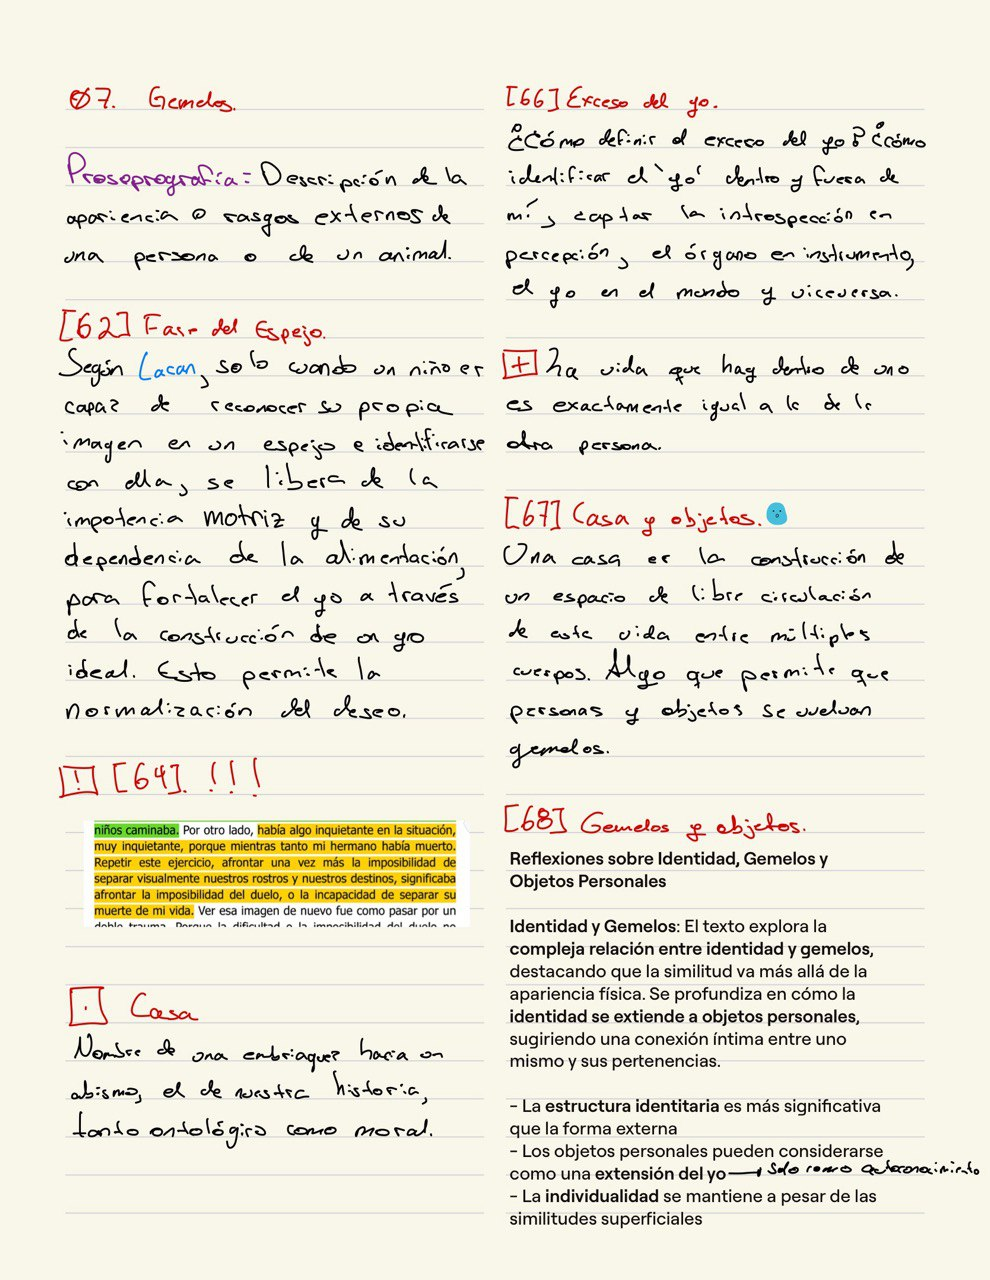 07. Gemelos.
Prosoprografía: Descripción de la
apariencia o rasgos externos de
una persona o de un animal.
[62] Fase del Espejo.
Según Lacan, solo cuando un niño es
capaz de reconocer su propia
imagen en un espejo e identificarse
con ella, se libera de la
impotencia motriz y de su
dependencia de la alimentación,
para fortalecer el yo a través
de la construcción de un yo
ideal. Esto permite la
normalización del deseo.
! [64]. !!!
niños caminaba. Por otro lado, había algo inquietante en la situación,
muy inquietante, porque mientras tanto mi hermano había muerto.
Repetir este ejercicio, afrontar una vez más la imposibilidad de
separar visualmente nuestros rostros y nuestros destinos, significaba
afrontar la imposibilidad del duelo, o la incapacidad de separar su
muerte de mi vida. Ver esa imagen de nuevo fue como pasar por un
doble trauma. Porque la dificultad o la imposibilidad del duelo no
· Casa
Nombre de una embriaguez hacia un
abismo, el de nuestra historia,
tanto ontológico como moral.
[66] Exceso del yo.
¿Cómo definir el exceso del yo? ¿cómo
identificar el 'yo' dentro y fuera de
mí, captar la introspección en
percepción, el órgano en instrumento,
el yo en el mundo y viceversa.
+ La vida que hay dentro de uno
es exactamente igual a la de la
otra persona.
[67] Casa y objetos.
Una casa es la construcción de
un espacio de libre circulación
de esta vida entre múltiples
cuerpos. Algo que permite que
personas y objetos se vuelvan
gemelos.
[68] Gemelos y objetos.
Reflexiones sobre Identidad, Gemelos y
Objetos Personales
Identidad y Gemelos: El texto explora la
compleja relación entre identidad y gemelos,
destacando que la similitud va más allá de la
apariencia física. Se profundiza en cómo la
identidad se extiende a objetos personales,
sugiriendo una conexión íntima entre uno
mismo y sus pertenencias.
- La estructura identitaria es más significativa
que la forma externa
- Los objetos personales pueden considerarse
como una extensión del yo → solo como autoconocimiento
- La individualidad se mantiene a pesar de las
similitudes superficiales